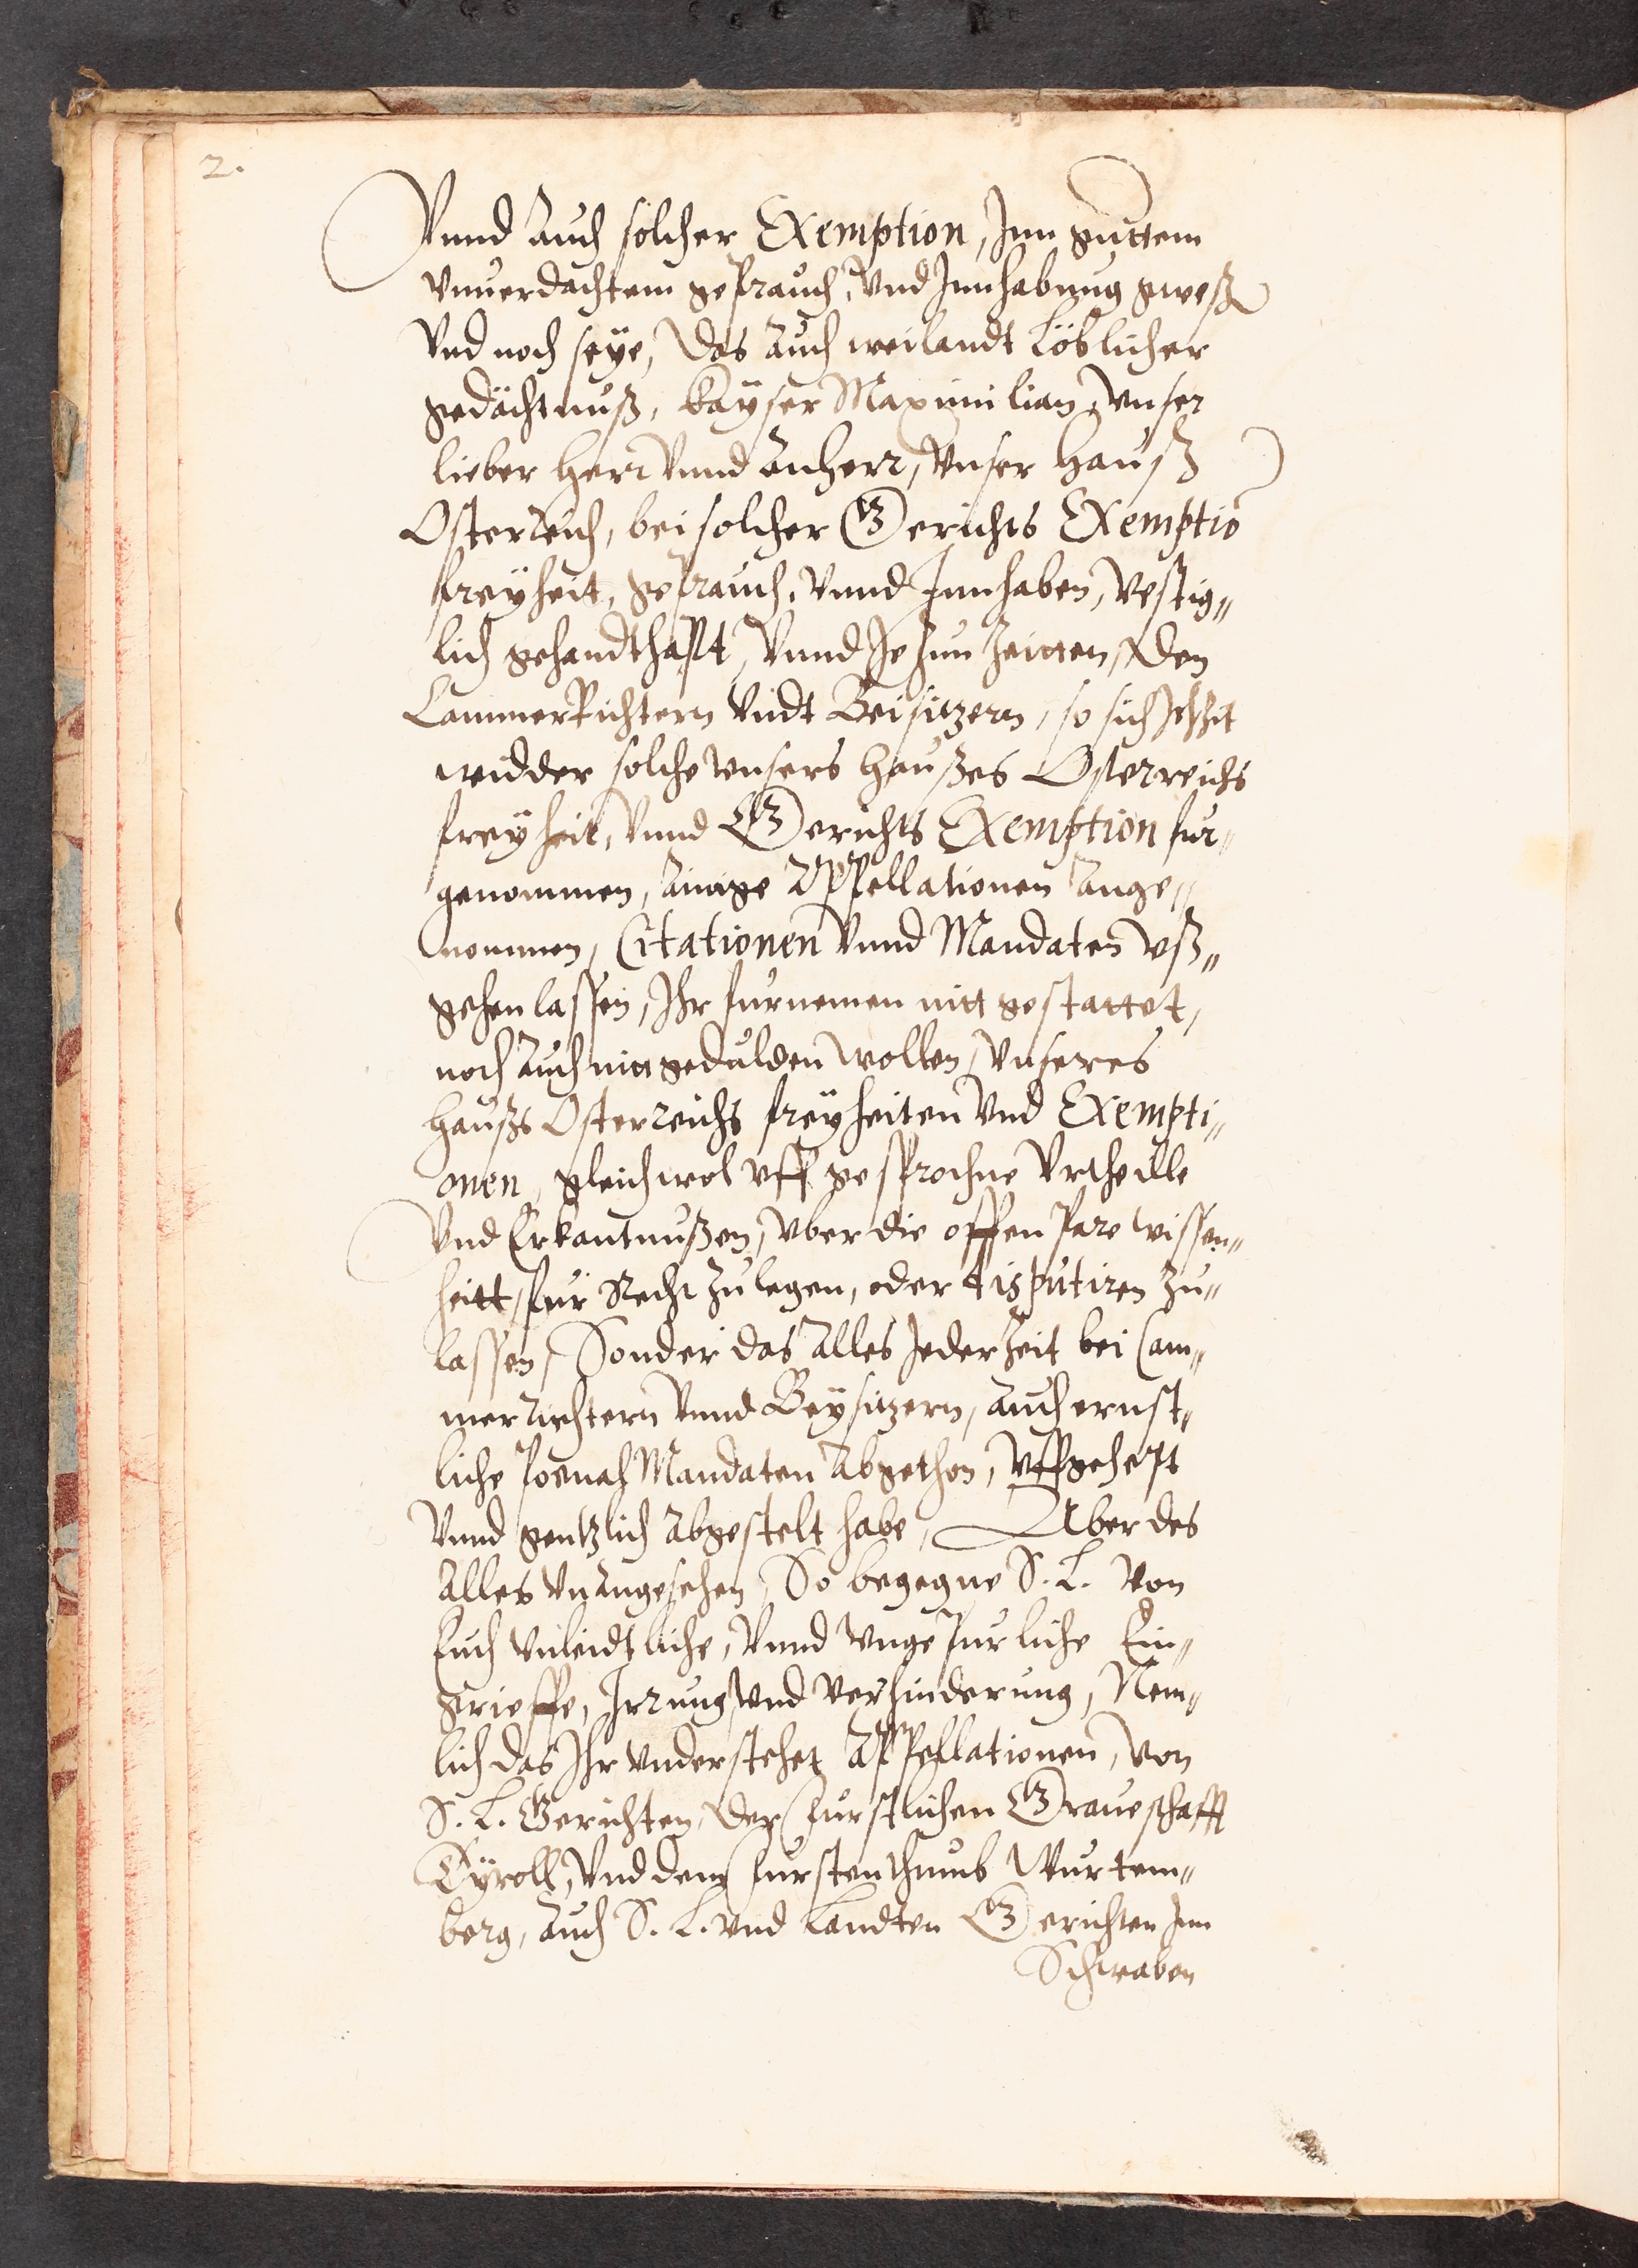 2.
Vnnd Auch solcher Exemption, Inn guttem
vnuerdachtem geprauch, Vnd Innhabung geweßen
Vnd noch seye, Das Auch weilandt Löblicher
gedächtnuß, Kayser Maximilian, Vnser
lieber Herr Vnnd Anherr, Vnser Hauß
Osterreich, bei solcher Gerichts Exemption
freyheit, geprauch, Vnnd Innhaben, Vestig„
lich gehandthapt, Vnnd Je Zun Zeitten, Den
CammerRichtern Vndt Beisitzern, so sich
widder solche Vnsers Haußes Osterreichs
freyheit, Vnnd Gerichts Exemption fur„
genommen, Ainige Appellationen Ange„
nommen, Citationen Vnnd Mandaten Vß„
gehen lassen, Ihr furnemen nitt gestattet,
noch Auch nitt gedulden wollen, Vnseres
Haußs Osterreichs freyheiten Vnd Exempti„
onen, gleichwol Vff gesprochne Vrtheille
Vnd Erkantnußen, Vber die offenpare wissen„
heitt, fur Recht Zulegen, oder disputiren Zu„
lassen, Sonder das Alles Jeder Zeit bei Cam„
merrichtern Vnnd Beysitzern, Auch ernst„
liche Poenal Mandaten Abgethon, Vffgehept
Vnnd gentzlich Abgestelt habe, Aber des
Alles Vnangesehen, So begegne S. L. Von
Euch Vnleidtliche, Vnnd Vngepurliche Ein„
grieffe, Irrung Vnd Verhinderung, Nem„
lich das Ihr Vnderstehet Appellationen, Von
S. L. Gerichten, Der furstlichen Graueschafft
Tyroll, Vnd dem furstenthumb Wurtem„
berg, Auch S. L. Vnd Landten Gerichten Inn
Schwaben